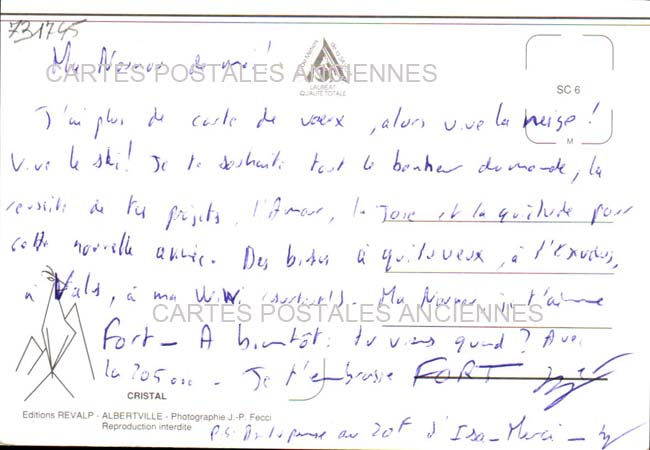 731745
Ma Nanou de moi!
CARTES POSTALES ANCIENNES
LAUREAT
QUALITE TOTALE
SC 6
M
J'ai plus de carte de voeux, alors vive la neige!
Vive le ski! Je te souhaite tout le bonheur du monde, la
réussite de tes projets, l'Amour, la Joie et la quiétude pour
cette nouvelle année. Des bisous à qui tu veux, à
à ma
Ma je t'aime
CARTES POSTALES ANCIENNES
Fort - A bientôt: tu viens quand? Avec
la 205 Je t'embrasse FORT
CRISTAL
Editions REVALP - ALBERTVILLE - Photographie J.-P. Fecci
Reproduction interdite
PS: au 20F d'Isa - Merci -